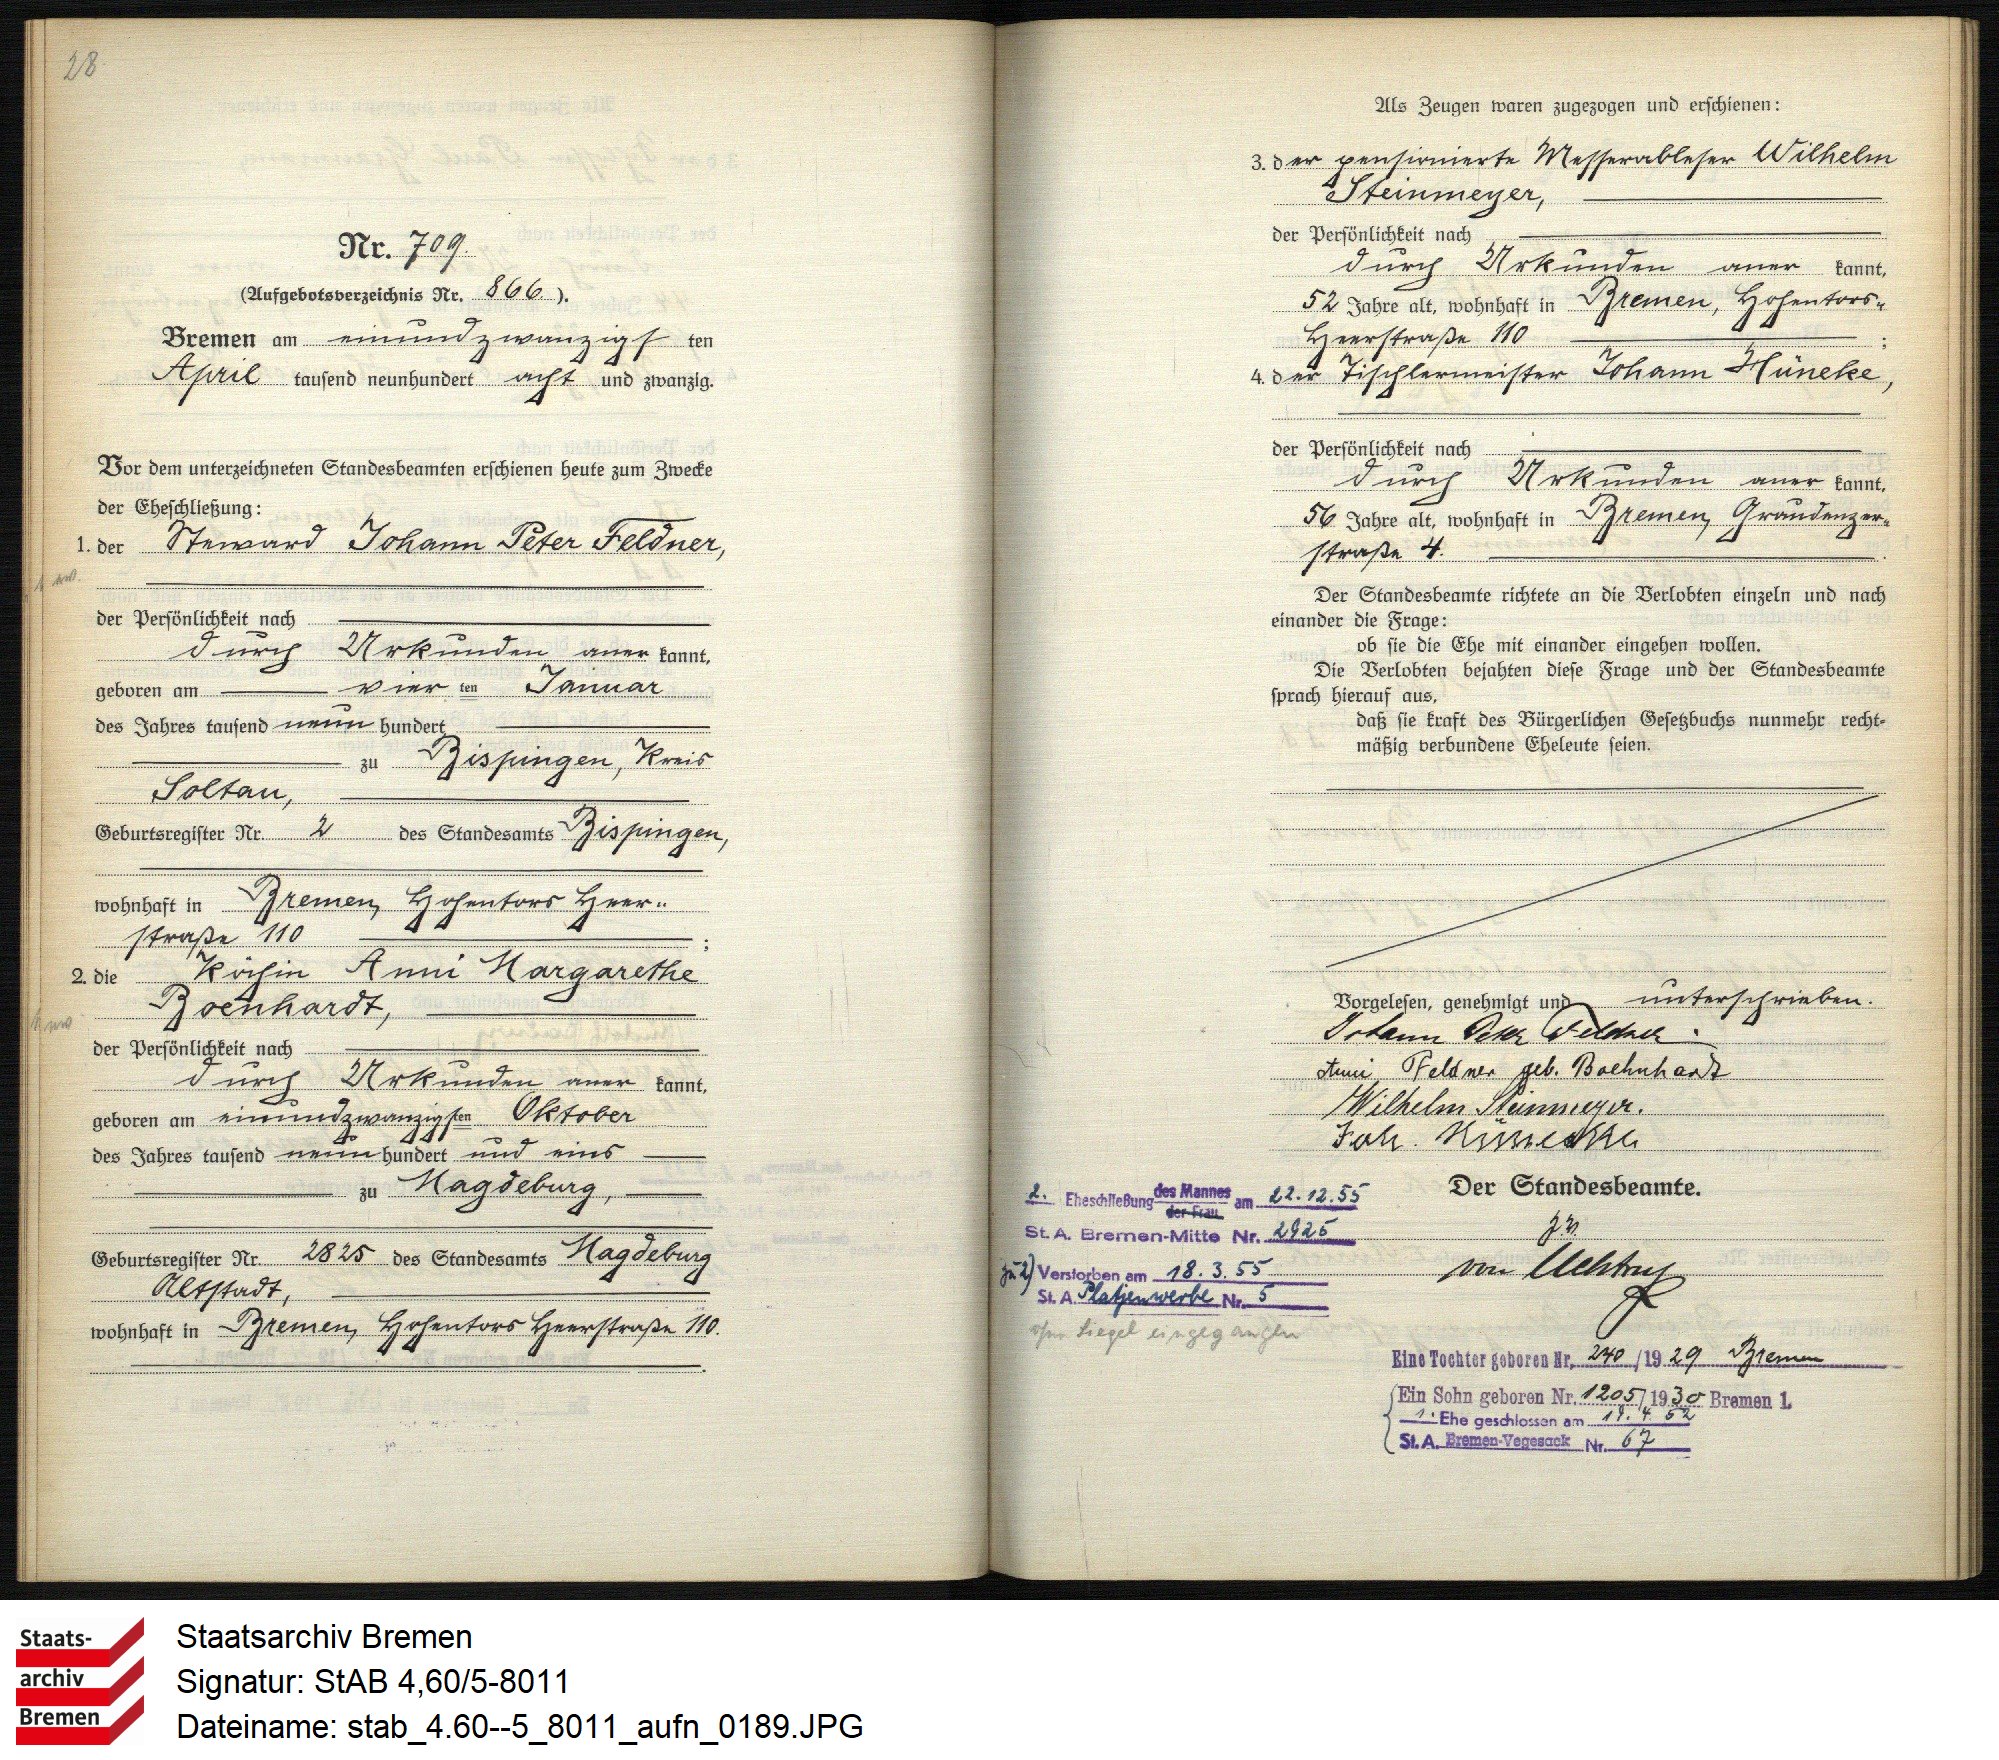 28.
Nr. 709.
(Aufgebotsverzeichnis Nr. 866.).
Bremen am einundzwanzigsten
April tausend neunhundert acht und zwanzig.
Vor dem unterzeichneten Standesbeamten erschienen heute zum Zwecke
der Eheschließung:
1. der Steward Johann Peter Feldner,
der Persönlichkeit nach
durch Urkunden aner kannt,
geboren am vier ten Januar
des Jahres tausend neun hundert
zu Bispingen, Kreis
Soltau,
Geburtsregister Nr. 2 des Standesamts Bispingen,
wohnhaft in Bremen, Hohentors Heer-
straße 110 ;
2. die Köchin Anni Margarethe
Boenhardt,
der Persönlichkeit nach
durch Urkunden aner kannt,
geboren am einundzwanzigsten Oktober
des Jahres tausend neun hundert und eins
zu Magdeburg,
Geburtsregister Nr. 2825 des Standesamts Magdeburg
Altstadt,
wohnhaft in Bremen, Hohentors Heerstraße 110.
Als Zeugen waren zugezogen und erschienen:
3. der pensionierte Messerableser Wilhelm
Steinmeyer,
der Persönlichkeit nach
durch Urkunden aner kannt,
52 Jahre alt, wohnhaft in Bremen, Hohentors-
Heerstraße 110 ;
4. der Tischlermeister Johann Hüneke,
der Persönlichkeit nach
durch Urkunden aner kannt,
56 Jahre alt, wohnhaft in Bremen, Graudenzer-
straße 4.
Der Standesbeamte richtete an die Verlobten einzeln und nach
einander die Frage:
ob sie die Ehe mit einander eingehen wollen.
Die Verlobten bejahten diese Frage und der Standesbeamte
sprach hierauf aus,
daß sie kraft des Bürgerlichen Gesetzbuchs nunmehr recht-
mäßig verbundene Eheleute seien.
Vorgelesen, genehmigt und unterschrieben.
Johann Peter Feldner.
Anni Feldner geb. Boehnhardt
Wilhelm Steinmeyer.
Joh. Hüneke
Der Standesbeamte.
2. Eheschließung des Mannes der Frau am 22.12.55
St. A. Bremen-Mitte Nr. 2925
zu 2) Verstorben am 18.3.55
St. A. Platjenwerbe Nr. 5
ohne Siegel eingegangen
Eine Tochter geboren Nr. 240 / 1929 Bremen
Ein Sohn geboren Nr. 1205 / 1930 Bremen 1.
1. Ehe geschlossen am 19.4.52
St. A. Bremen-Vegesack Nr. 67
Staats-
archiv
Bremen
Staatsarchiv Bremen
Signatur: StAB 4,60/5-8011
Dateiname: stab_4.60--5_8011_aufn_0189.JPG